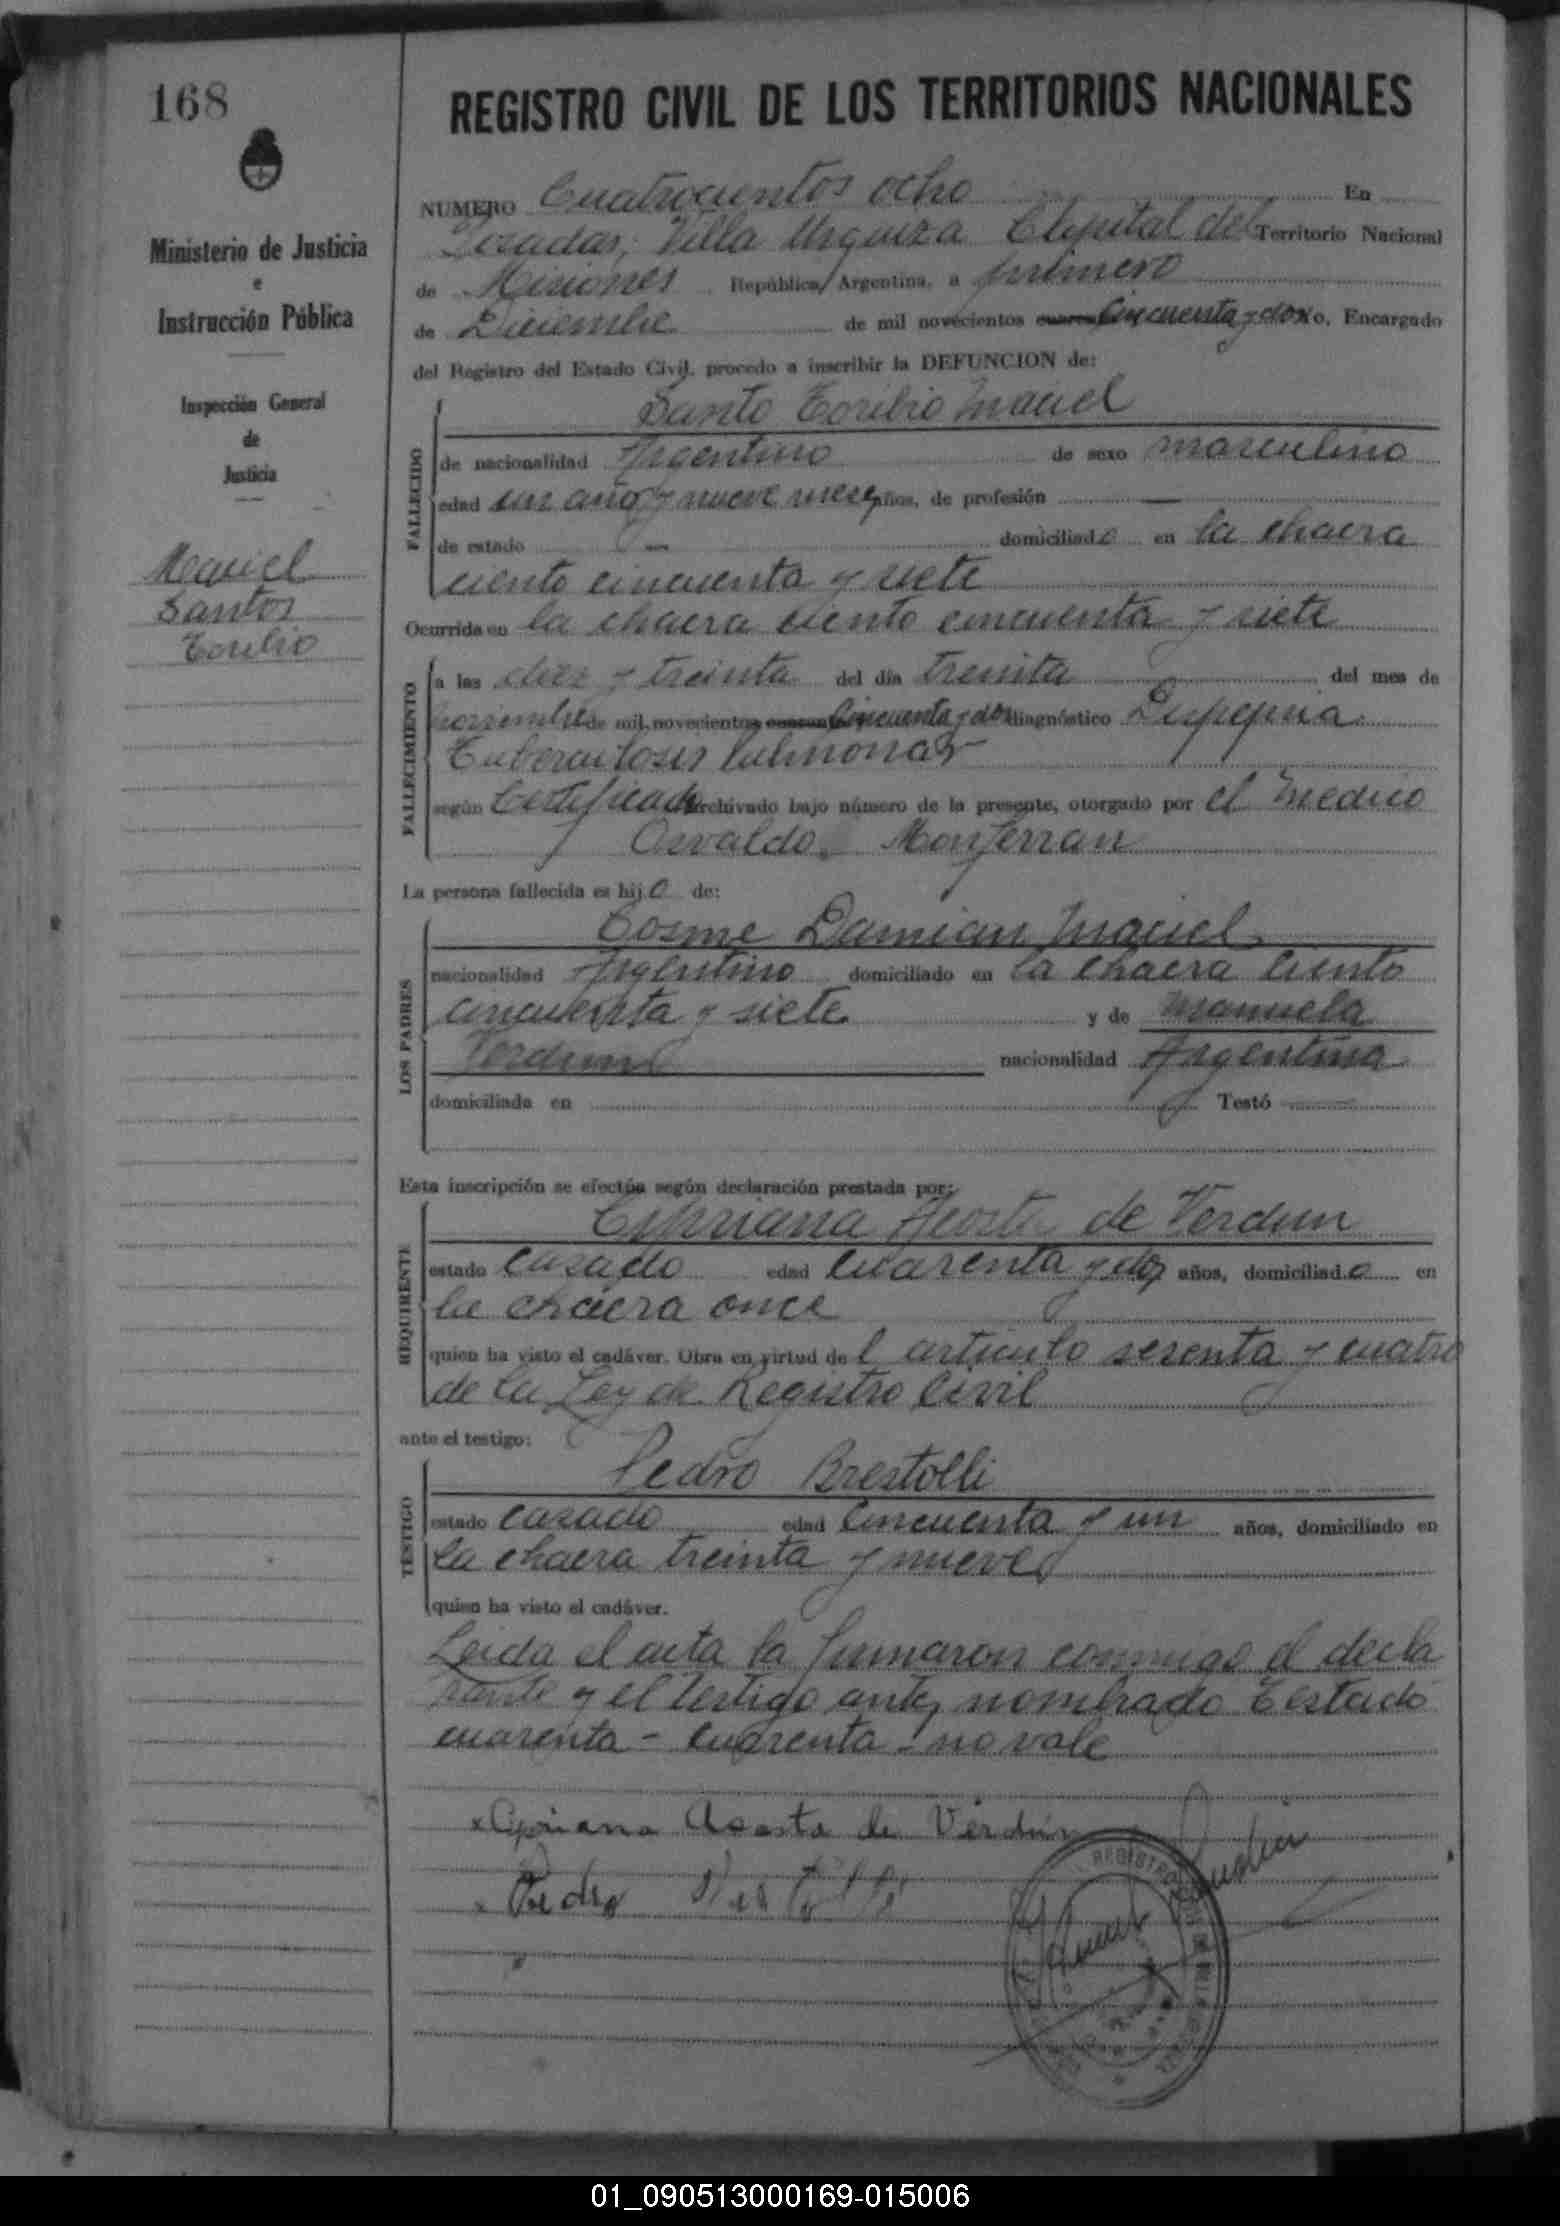 168
REGISTRO CIVIL DE LOS TERRITORIOS NACIONALES
Ministerio de Justicia
e
Instrucción Pública
Inspección General
de
Justicia
Maciel
Santos
Toribio
NUMERO Cuatrocientos ocho En
Posadas, Villa Urquiza Capital del Territorio Nacional
de Misiones República Argentina, a primero
de Diciembre de mil novecientos cuarenta cincuenta y dos Yo, Encargado
del Registro del Estado Civil, procedo a inscribir la DEFUNCION de:
FALLECIDO
Santo Toribio Maciel
de nacionalidad Argentino de sexo masculino
edad un año y nueve meses años, de profesión —
de estado — domiciliado en la chacra
ciento cincuenta y siete
Ocurrida en la chacra ciento cincuenta y siete
FALLECIMIENTO
a las diez y treinta del día treinta del mes de
noviembre de mil novecientos cuarenta cincuenta y dos diagnóstico Dispepsia
Tuberculosis Pulmonar
según Certificado archivado bajo número de la presente, otorgado por el Medico
Osvaldo Monferran
La persona fallecida es hijo de:
LOS PADRES
Cosme Damian Maciel
nacionalidad Argentino domiciliado en la chacra ciento
cincuenta y siete y de Manuela
Verdun nacionalidad Argentina
domiciliada en Testó
Esta inscripción se efectúa según declaración prestada por:
REQUIRENTE
Cipriana Acosta de Verdun
estado casado edad cuarenta y dos años, domiciliado en
la chacra once
quien ha visto el cadáver. Obra en virtud del artículo sesenta y cuatro
de la Ley de Registro Civil
ante el testigo:
TESTIGO
Pedro Brestolli
estado casado edad cincuenta y un años, domiciliado en
la chacra treinta y nueve
quien ha visto el cadáver.
Leida el acta la firmaron conmigo el decla
rante y el testigo antes nombrado Testado
cuarenta - cuarenta - no vale
x Cipriana Acosta de Verdún
x Pedro
REGISTRO
01_090513000169-015006